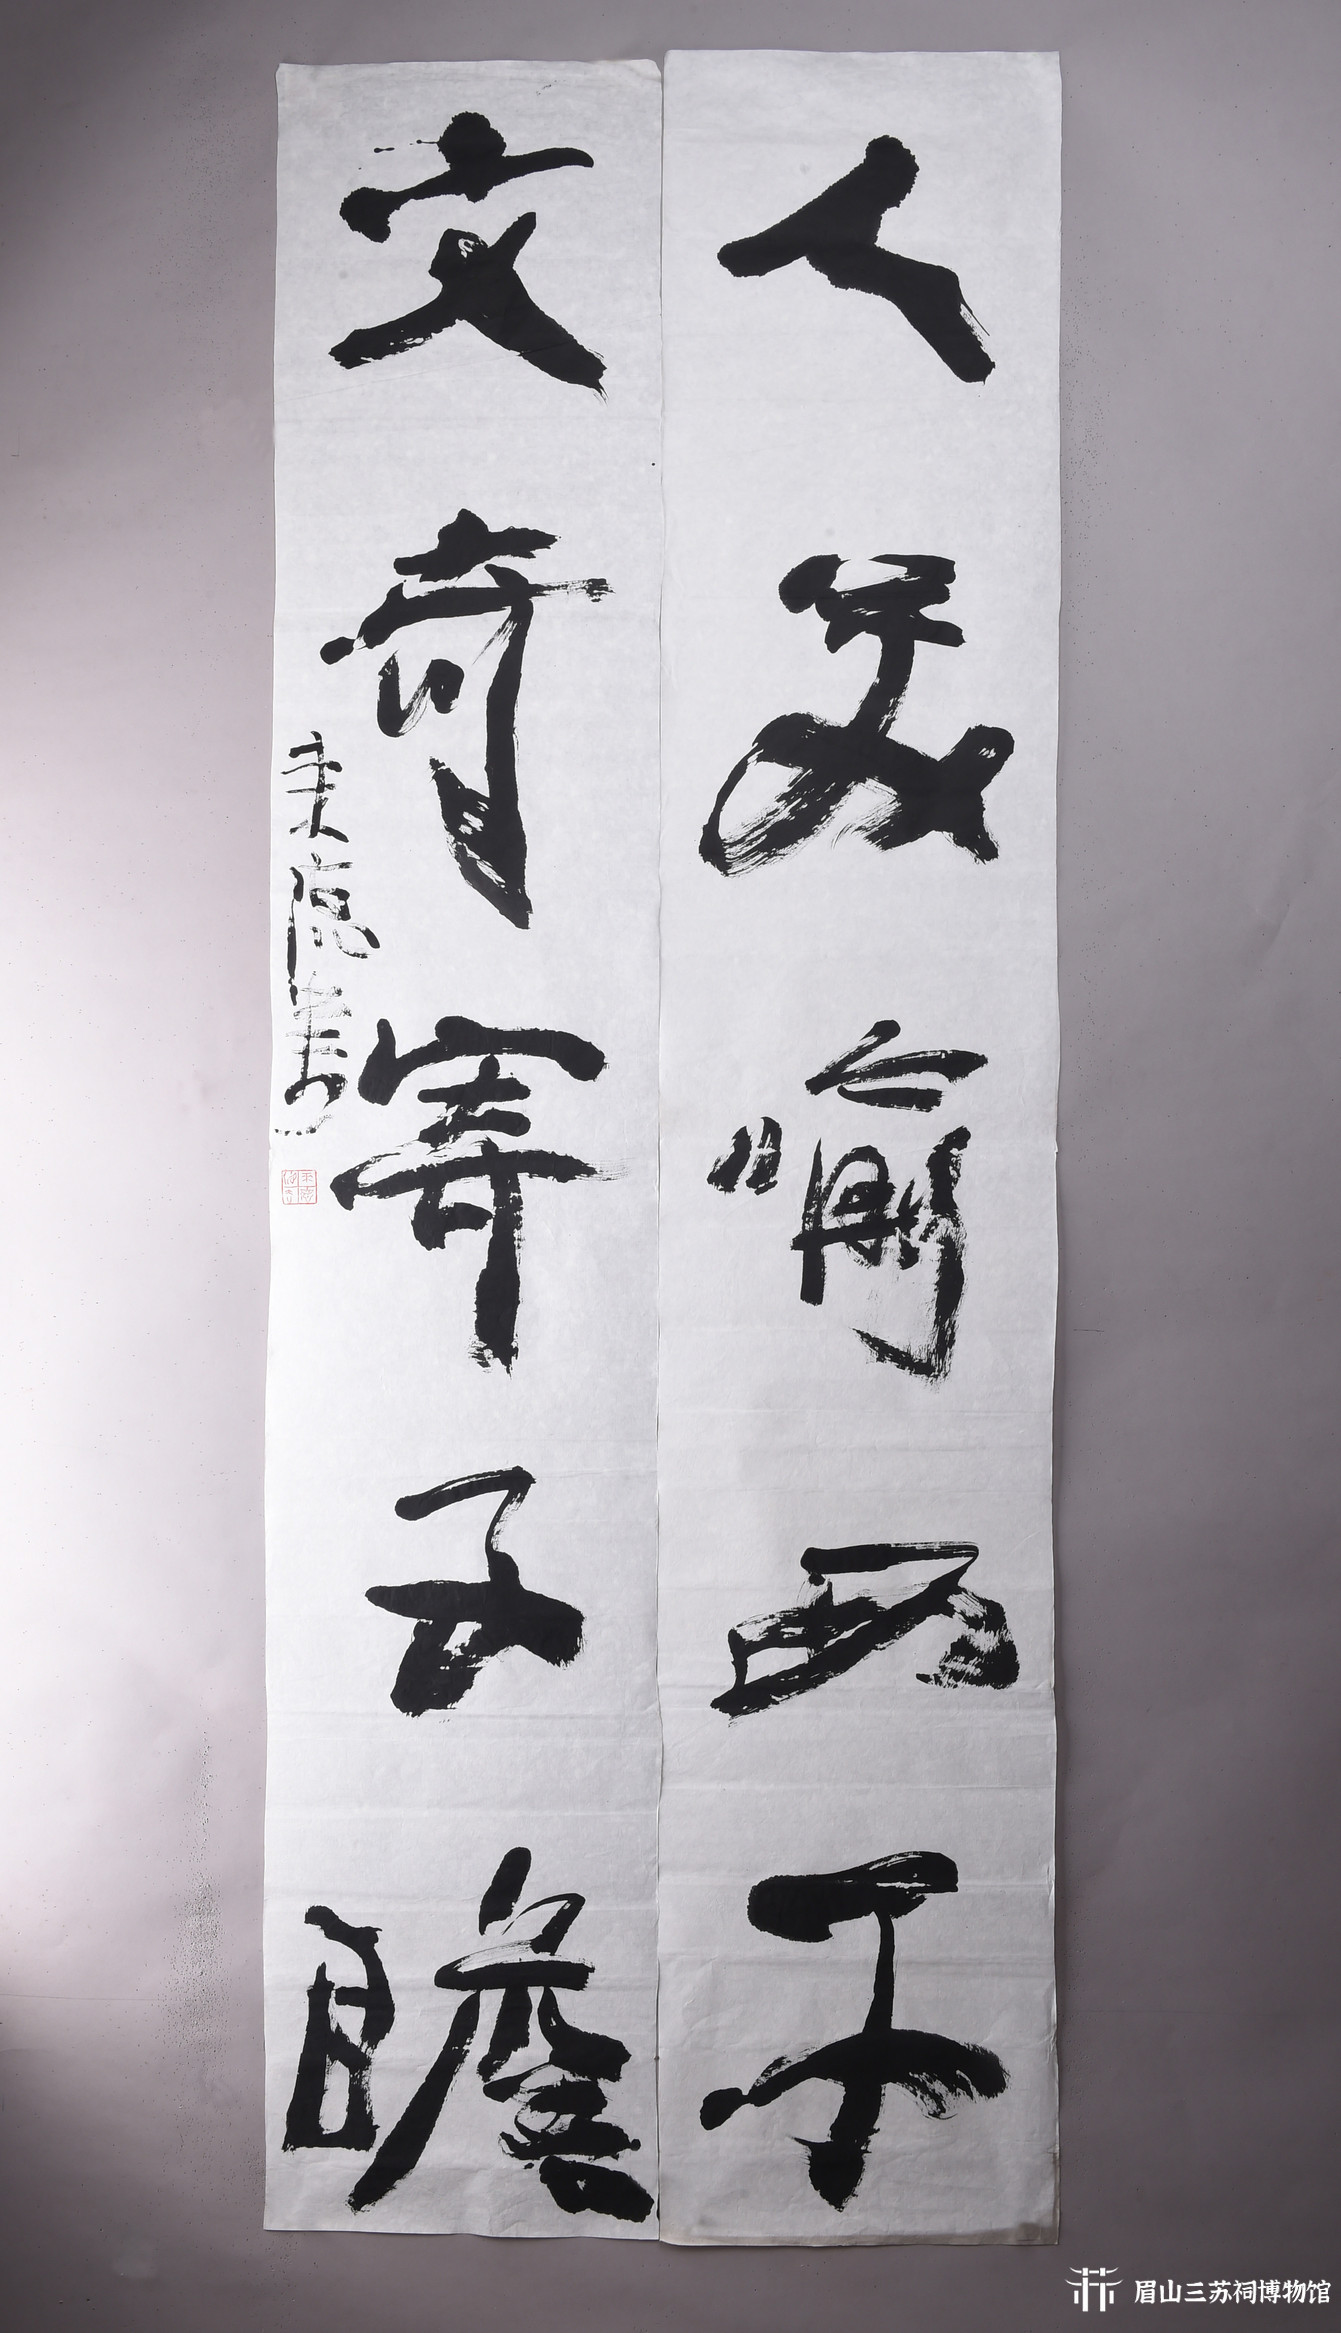 人美喻西子
文奇寄子瞻
眉山三苏祠博物馆